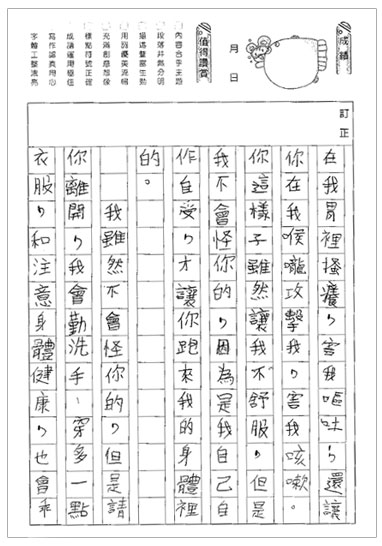 成績
月　日
值得讚賞
內容合乎主題
段落井然分明
描寫豐富生動
用詞優美流暢
充滿創意想像
標點符號正確
成語運用極佳
寫作認真用心
字體工整漂亮
訂正
在我胃裡搔癢，害我嘔吐，還讓
你在我喉嚨攻擊我，害我咳嗽。
你這樣子雖然讓我不舒服，但是
我不會怪你的，因為是我自己自
作自受，才讓你跑來我的身體裡
的。
我雖然不會怪你的，但是請
你離開，我會勤洗手、穿多一點
衣服，和注意身體健康，也會乖